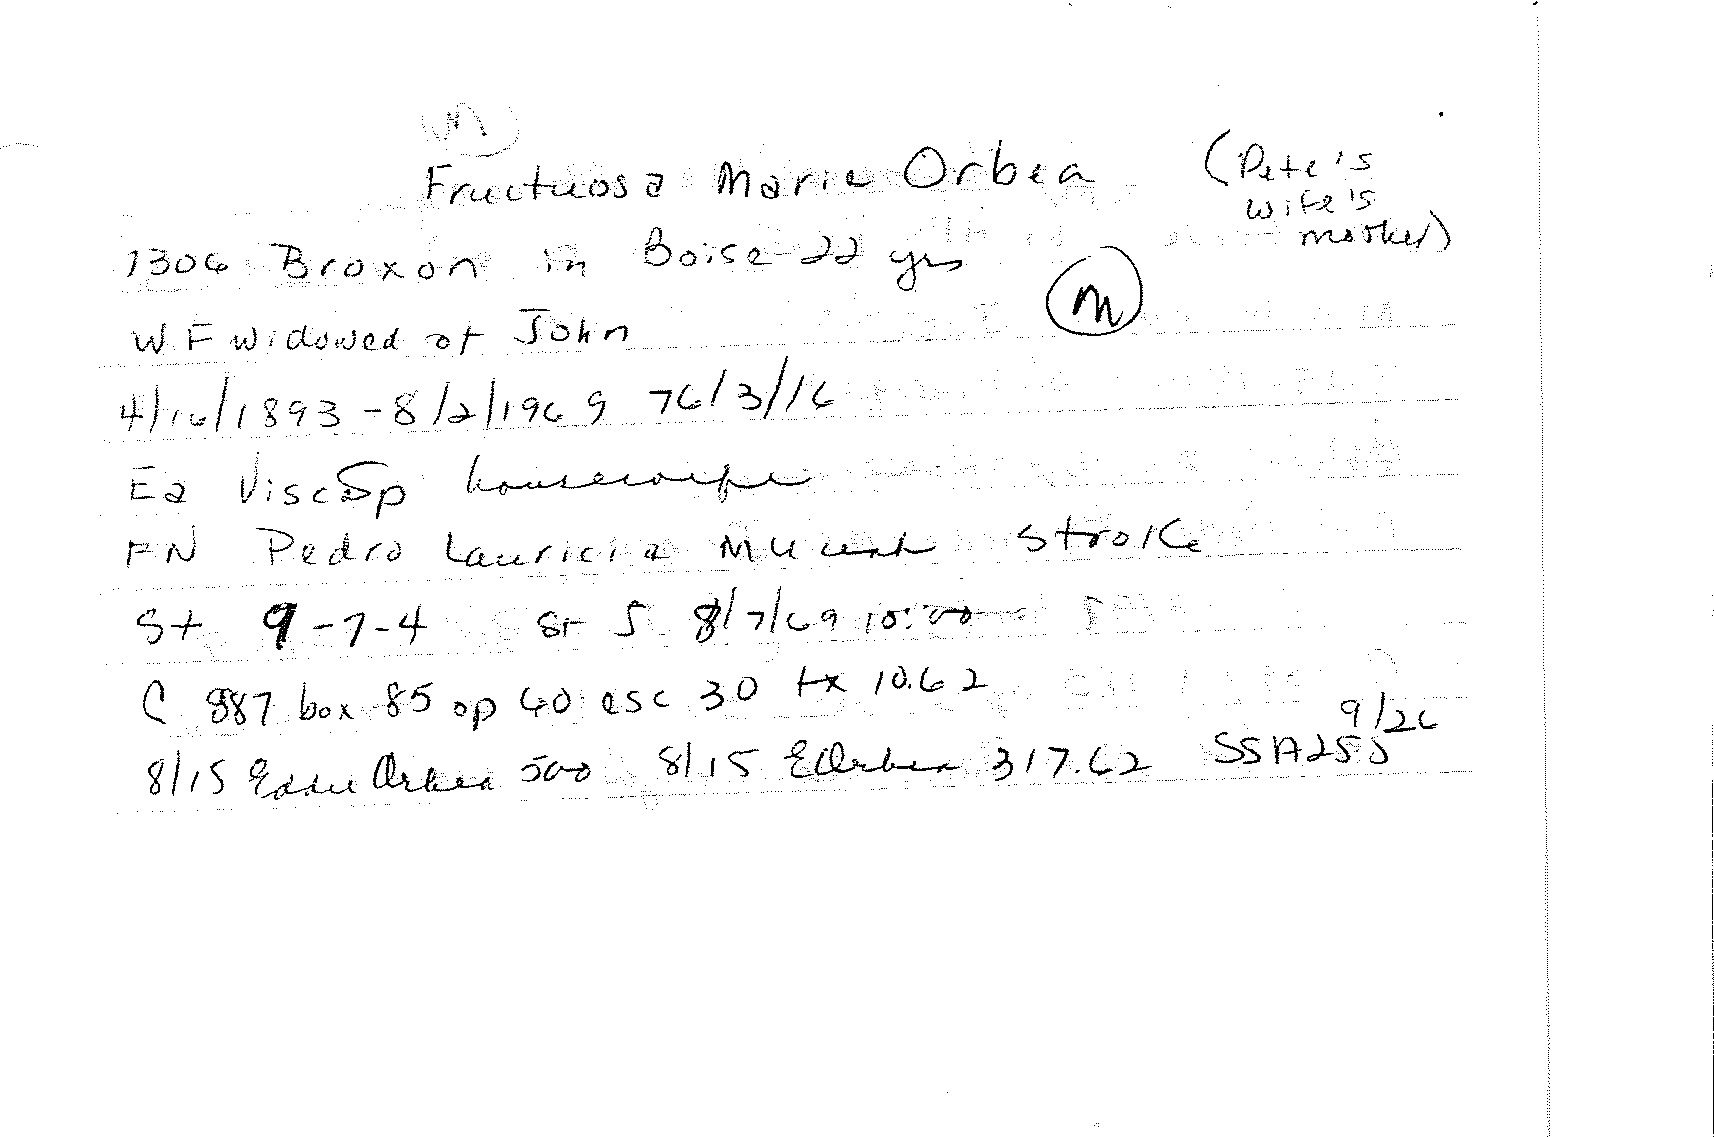 Fructuosa Marie Orbea (Pete's
wife's
mother)
1306 Broxon in Boise 22 yrs
M
W F widowed of John
4/16/1893 - 8/2/1969 76/3/16
Ea Visc Sp housewife
FN Pedro Lauricia MN unk stroke
St 9-7-4 Sr S 8/7/69 10:00
C 887 box 85 op 60 esc 30 tx 10.62
9/26
8/15 Eddie Orbea 500 8/15 E Orbea 317.62 SSA 255